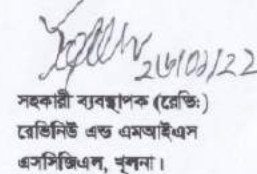 ২৬/০১/২২
সহকারী ব্যবস্থাপক (রেভি:)
রেভিনিউ এন্ড এমআইএস
এসসিজিএল, খুলনা।